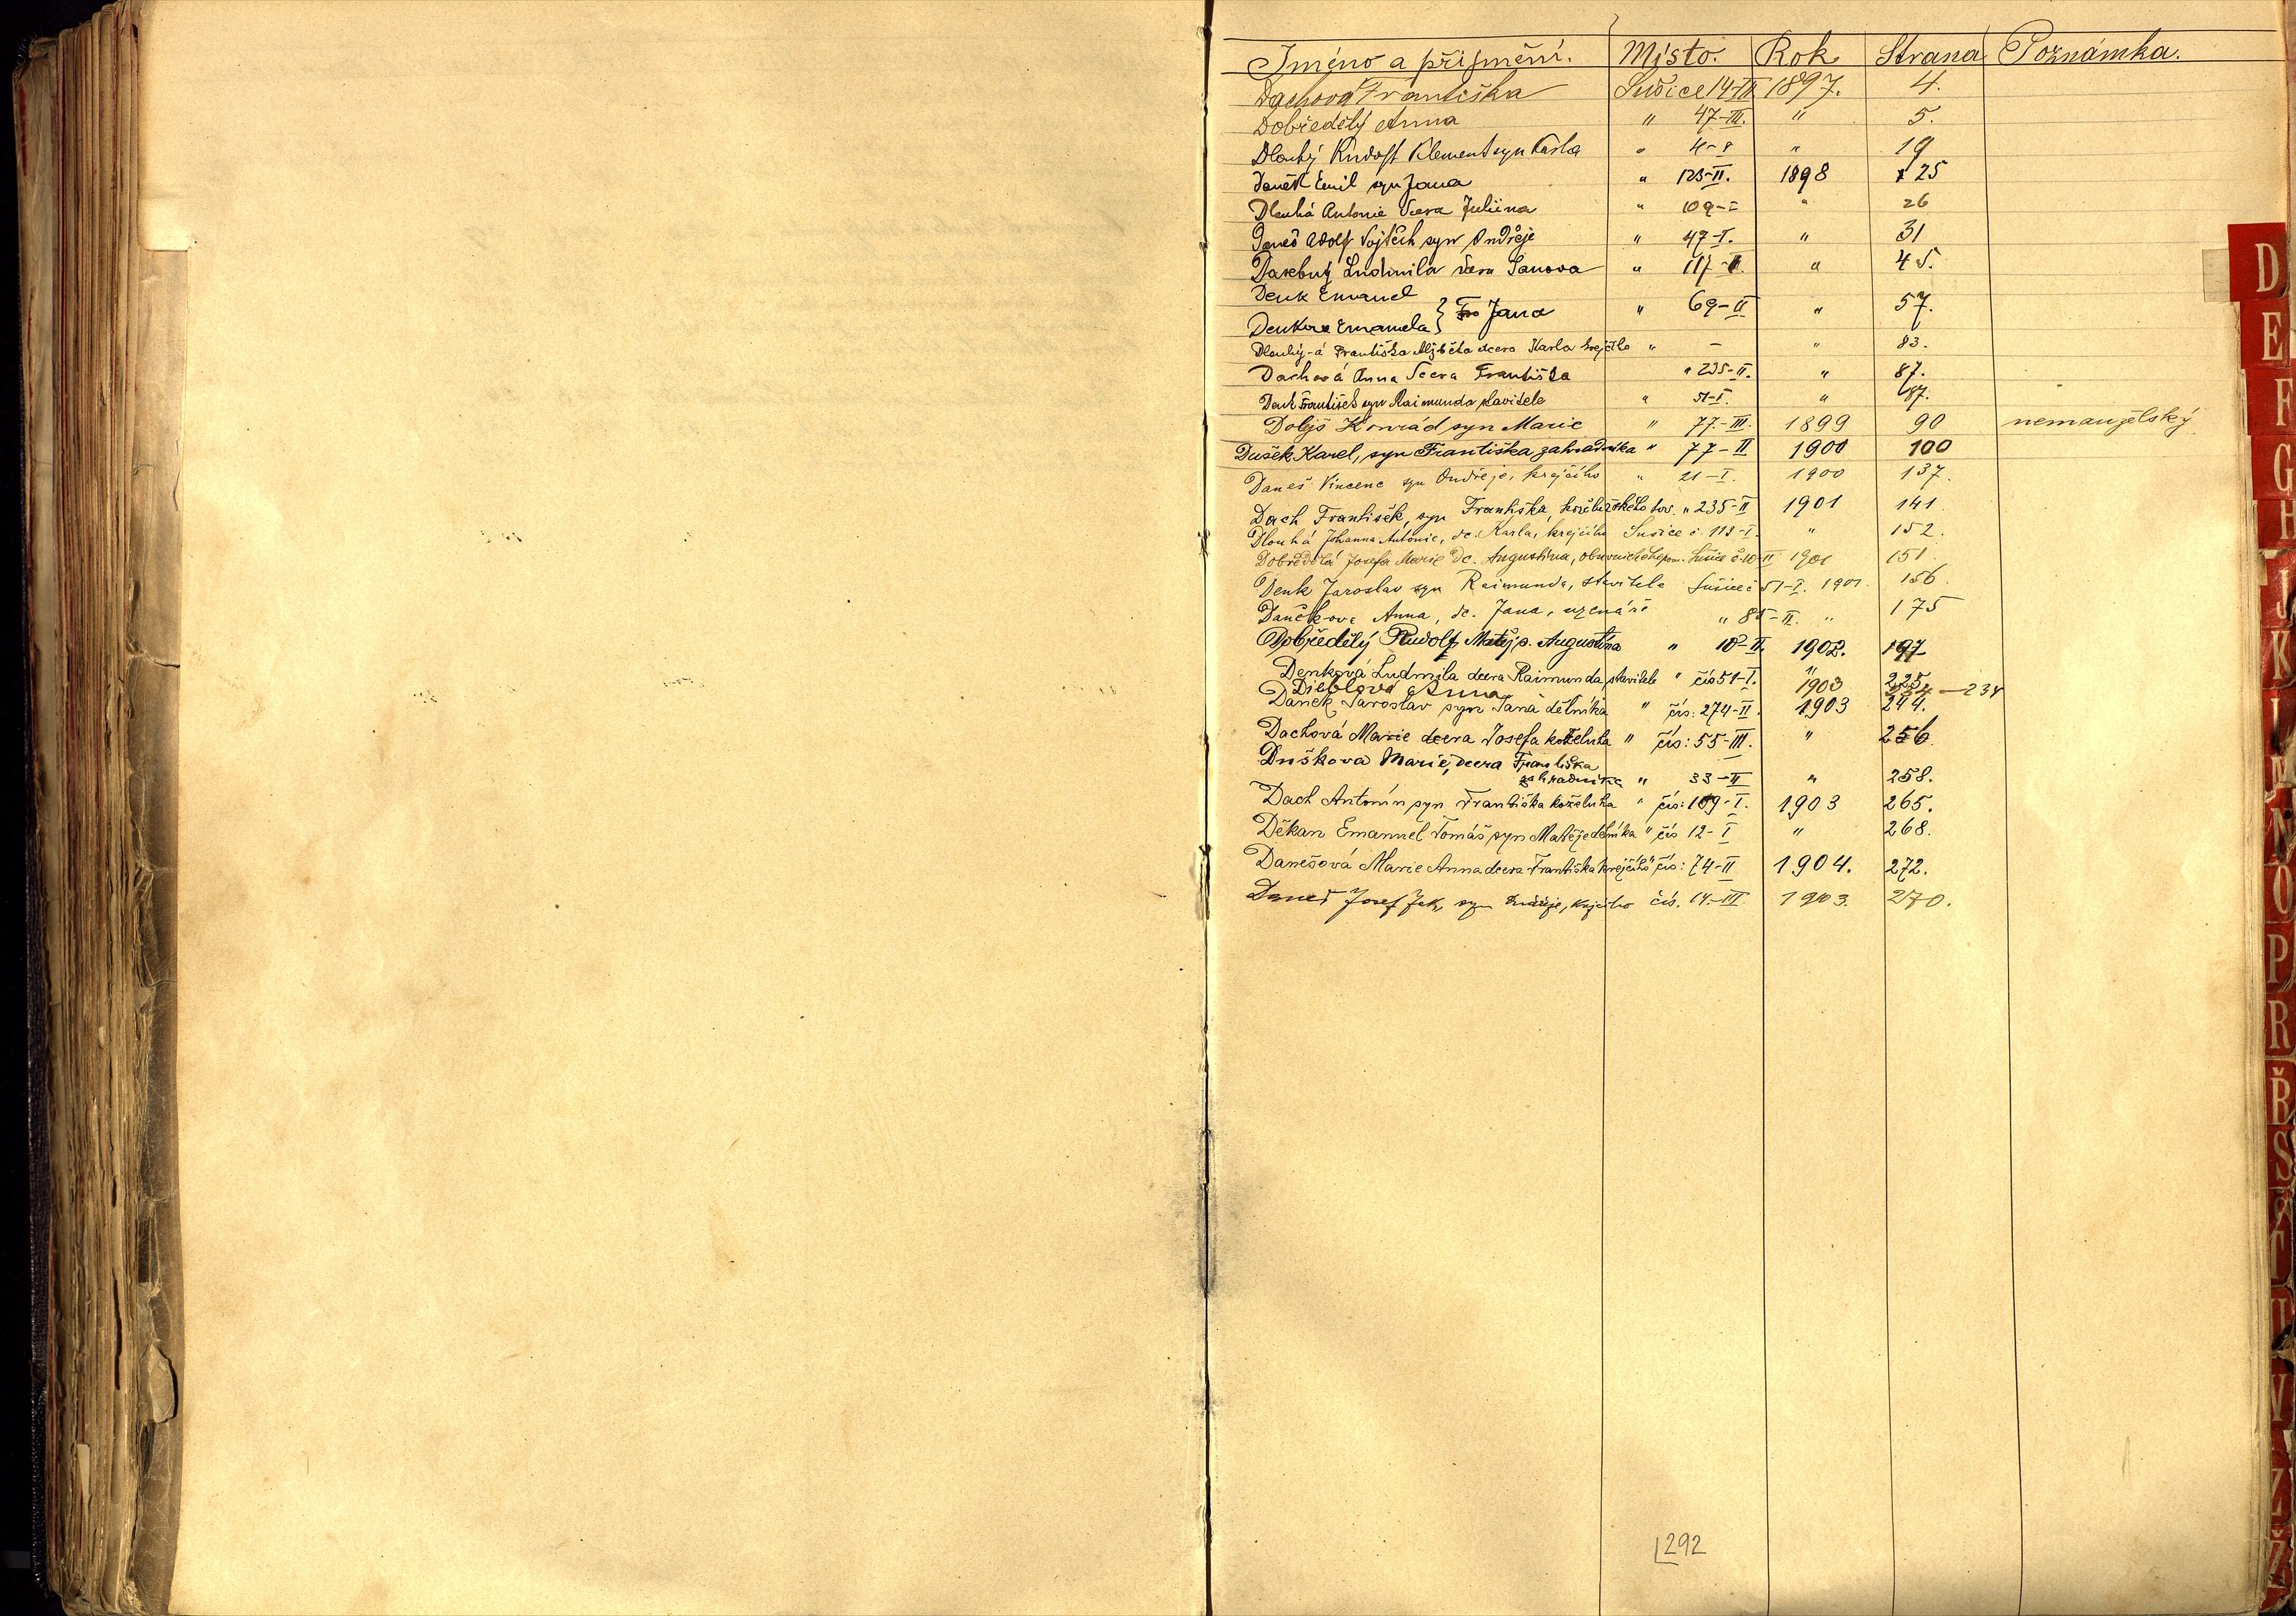 Jméno a příjmění. Místo. Rok Strana Poznámka.
Dachová Františka Sušice 14-II 1897. 4.
Dobředělý Anna " 47-III. " 5.
Dlouhý Rudolf Klement syn Karla " " 19
Daněk Emil syn Jana " 123-II. 1898 25
Dlouhá Antonie dcera Juliina " 109-I " 26
Daneš Adolf Vojtěch syn Ondřeje " 47-I. " 31
Ludmila dcera Janova " 117-II. " 45.
Denk Emanuel
Denkova Emanuela } Jana " 69-II " 57.
Dlouhý-á Františka Alžběta dcera Karla krejčího " – " 83.
Dachová Anna dcera Františka " 235-II. " 87.
Denk František syn Raimunda stavitele " 51-I. " 87.
Dolejš Konrád syn Marie " 77-III. 1899 90 nemanželský
Dušek Karel, syn Františka zahradníka " 77-II 1900 100
Daneš Vincenc syn Ondřeje, krejčího " 21-I. 1900 137.
Dach František, syn Františka, koželužského tov. " 235-II 1901 141
Dlouhá Johanna Antonie, dc. Karla, krejčího Sušice č. 113-I. " 152.
Dobředělá Josefa Marie dc. Augustina, obuvnického pom. Sušice č. 10-II 1901 151.
Denk Jaroslav syn Raimunda, stavitele Sušice č 51-I. 1901. 156.
Daňkova Anna, dc. Jana, uzenáře " 85-II. " 175
Dobředělý Rudolf Matěj s. Augustina " 10-II. 1902. 197
Denková Ludmila dcera Raimunda stavitele " čís 51-I. " 225
Dieblová Anna 1903 234 – 234
Daněk Jaroslav syn Jana dělníka " čís: 274-II. 1903 244.
Dachová Marie dcera Josefa koželuha " čís: 55-III. " 256.
Duškova Marie, dcera Františka
zahradníka " 33-II " 258.
Dach Antonín syn Františka koželuha " čís: 109-I. 1903 265.
Děkan Emanuel Tomáš syn Matěje dělníka " čís 12-I " 268.
Danešová Marie Anna dcera Františka krejčího " čís: 74-II 1904. 272.
Daneš Josef Jak. syn Ondřeje, krejčího čís. 14-III 1903. 270.
292
D
E
F
G
H
J
K
L
M
N
O
P
R
Ř
S
Š
T
U
V
Z
Ž